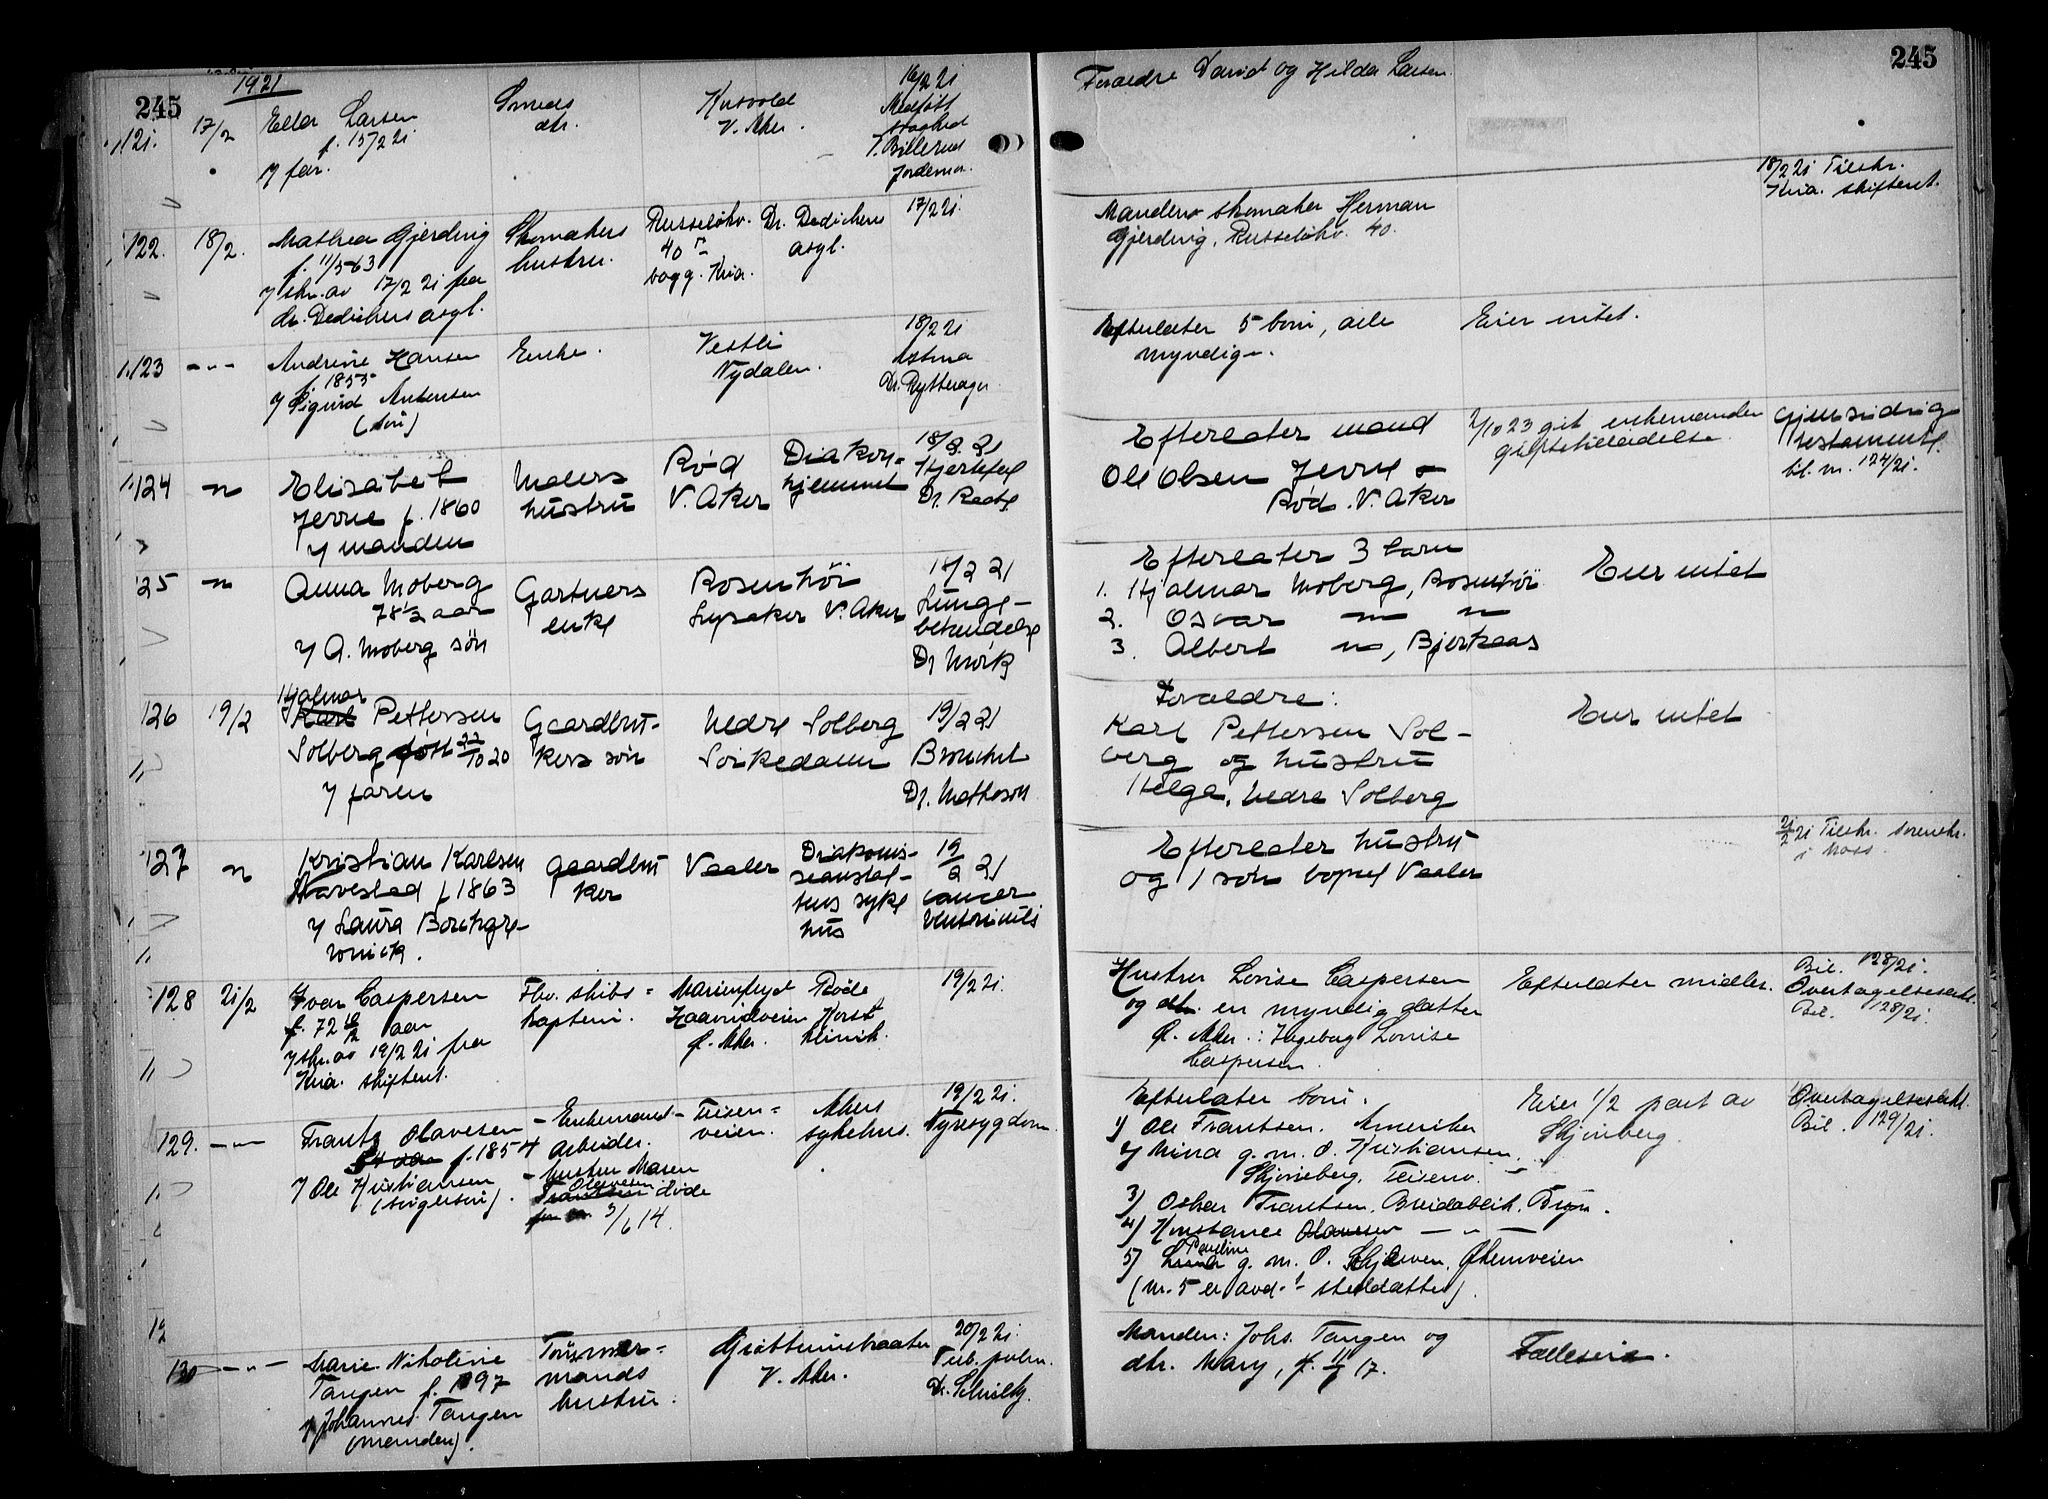 245
1921
121. 17/2 Ella Larsen f. 15/2 21
Smeds dtr.
V. Aker.
16/2 21
Medfødt svaghed
Jordemor.
Foreldre David og Hilda Larsen.
245
122. 18/2. Mathea Gjerdrig
f. 11/5-63
Skomakers hustru.
Russeløkv. 40
Kria.
Dr. Dedichens asyl.
17/2 21.
7 skr. av 17/2 21 fra dr. Dedichens asyl.
Manden skomaker Herman Gjerdrig, Russeløkv. 40.
18/2 21 Tilskr. Kria. skifteret.
123 -"- Andrine Hansen f. 1855
Enke.
Vestli Nydalen.
18/2 21
Astma
7 Sigurd Antensen (søn)
Efterlater 5 børn, alle myndige.
Eier intet.
124 -"- Elisabet Jevne f. 1860
7 manden
Malers hustru
Rød V. Aker
Diakonhjemmet
18/2. 21
Hjertefeil
Efterlater mand
Ole Olsen Jevne
Rød. V. Aker
2/10 23 git enkemanden giftetilladelse.
Gjensidig testamente.
bil. nr. 124/21.
125 -"- Anna Moberg
78 1/2 aar
7 A. Moberg søn
Gartners enke
Rosenhöi
Lysaker V. Aker
18/2 21
Lungebetendelse
Dr. Mörk
Efterlater 3 barn
1. Hjalmar Moberg, Rosenhöi
2. Osvar -"- -"-
3. Albert -"-, Bjerkaas
Eier intet
126 19/2 Hjalmar
Karl Pettersen
Solberg født 22/10 20
7 faren
Gaardbrukers søn
Nedre Solberg
Sörkedalen
19/2 21
Bronchit
Dr. Matheson
Foreldre:
Karl Pettersen Solberg og hustru
Helga, Nedre Solberg
Eier intet
127 -"- Kristian Karlsen
Navestad f. 1863
7 Laura Borchgrevnick.
Gaardbruker
Vaaler
Diakonisseanstaltens sykehus
19/2 21
cancer ventriculi
Efterlater hustru
og 1 søn bopel Vaaler
21/2 21 Tilskr. sorenskr. i Moss.
128 21/2 Ivar Caspersen
f. 72 10/12 aar
7 skr. av 19/2 21 fra
Kria. skifteret.
Fhv. skibskaptein.
Marienfryd
Ø. Aker.
Røde Kors klinik.
19/2 21.
Hustru Lovise Caspersen
og dtr. en myndig datter
Ø. Aker.: Ingeborg Lovise
Caspersen.
Efterlater midler.
Bil. 128/21.
Overtagelseserkl.
Bil. 128/21.
129. -"- Frantz Olavesen
f. 1854
7 Ole Kristiansen
(svigersøn).
Enkemand - Arbeider.
hustru Maren
Olavesen død
3/6 14.
Teisenveien.
Akers sykehus.
19/2 21.
Nyresygdom.
Efterlater børn.
1) Ole Frantsen. Amerika
2) Mina g. m. O. Kristiansen
Skjönberg, Teisenv.
3) Oskar Frantsen, Breidablik. Bryn.
4) Konstance Olavesen -"-
5) Pauline g. m. O. Skjelven, Økernveien
(nr. 5 er avd. steddatter).
Eier 1/2 part av Skjönberg.
Overtagelseserkl.
Bil. 129/21.
12
130 -"- Marie Nikoline
Tangen f. 1897
7 Johannes Tangen
(manden).
Tømmermands hustru.
V. Aker.
20/2 21.
Tub. pulm.
Manden: Johs. Tangen og
dtr. Mary, f. 17.
Fælleseie.